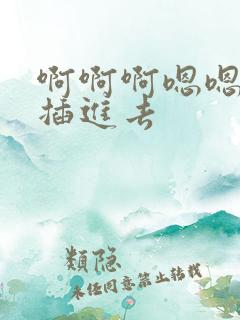 啊啊啊嗯嗯
插进去
类隐
未经同意禁止转载